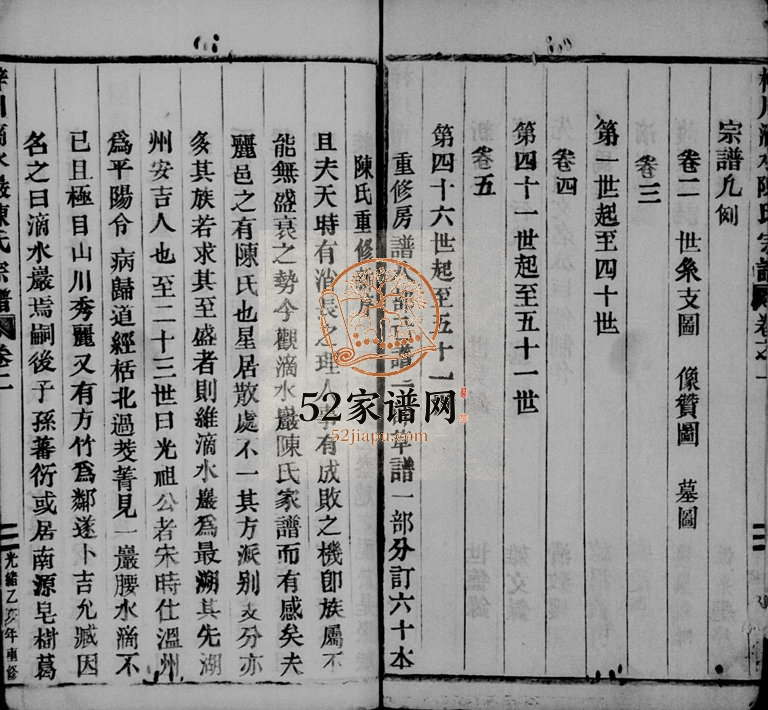 宗譜凡例
卷二 世系支圖 像贊圖 墓圖
卷三
第一世起至四十世
卷四
第四十一世起至五十一世
卷五
第四十六世起至五十一
重修房譜 部 譜 部草譜一部分訂六十本
陳氏重修 序
且夫天時有消長之理人事有成敗之機卽族屬不
能無盛衰之勢今觀滴水巖陳氏家譜而有感矣夫
麗邑之有陳氏也星居散處不一其方派别支分亦
多其族若求其至盛者則維滴水巖爲最溯其先湖
州安吉人也至二十三世曰光祖公者宋時仕溫州
爲平陽令 病歸道經栝北過芰菁見一巖腰水滴不
已且極目山川秀麗又有方竹爲鄰遂卜吉允臧因
名之曰滴水巖焉嗣後子孫蕃衍或居南源皂樹葛
川滴水巖陳氏宗譜 卷一
光緒乙亥年重修
52家谱网
52jiapu.com